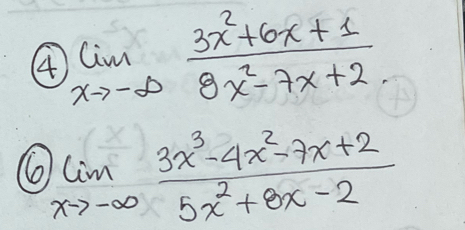 ④ lim x→-∞ (3x²+6x+1)/(8x²-7x+2).
⑥ lim x→-∞ (3x³-4x²-7x+2)/(5x²+8x-2)